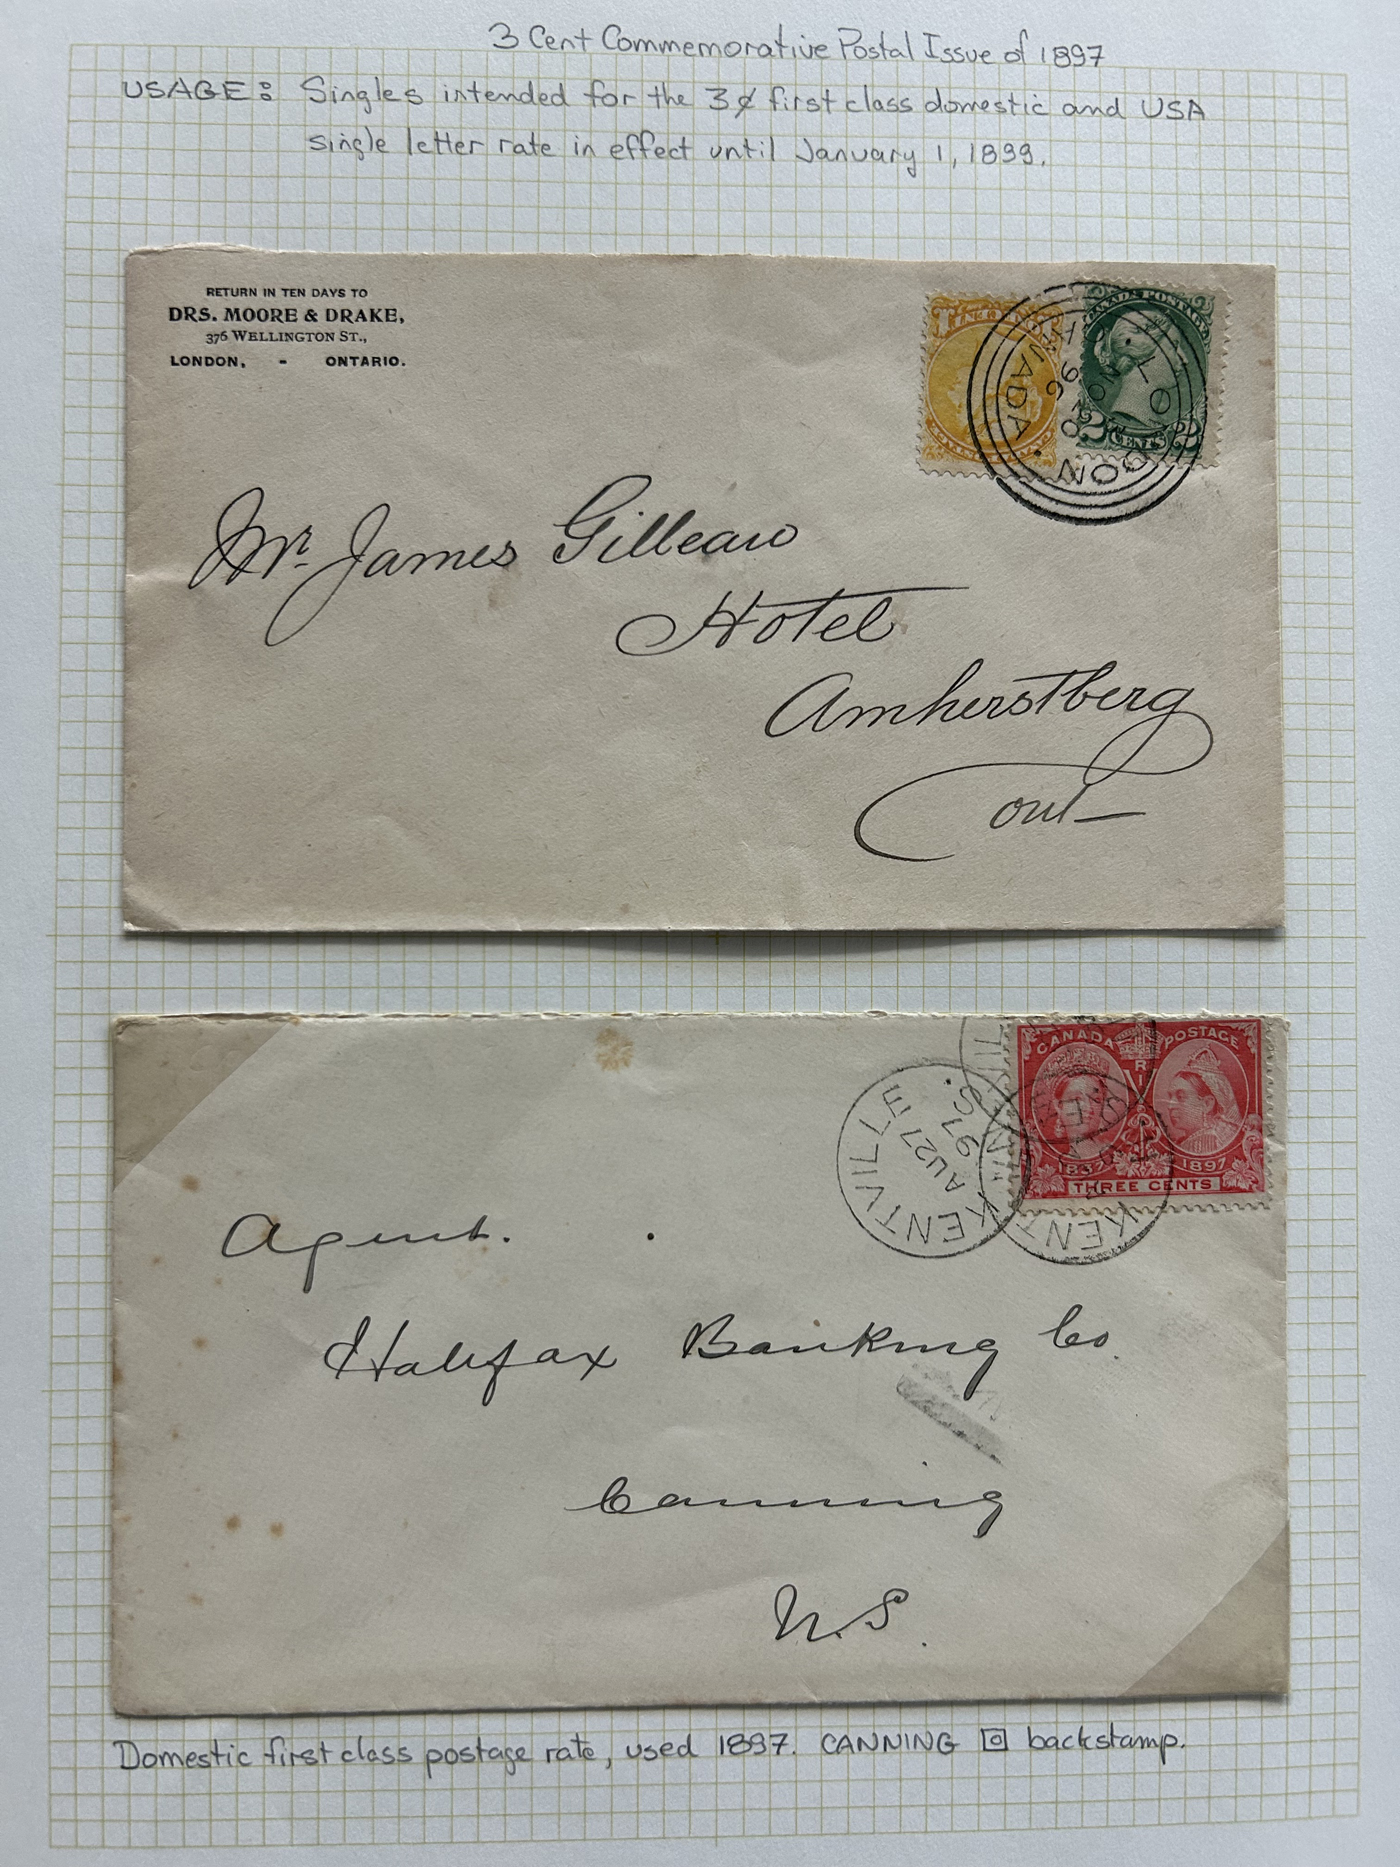 3 Cent Commemorative Postal Issue of 1897
USAGE: Singles intended for the 3¢ first class domestic and USA
single letter rate in effect until January 1, 1899.
RETURN IN TEN DAYS TO
DRS. MOORE & DRAKE,
376 WELLINGTON ST.,
LONDON, - ONTARIO.
CANADA POSTAGE
2 CENTS 2
LONDON
CANADA
Mr. James Gilleaw
Hotel
Amherstberg
Ont
CANADA POSTAGE
1837 1897
THREE CENTS
KENTVILLE
AU 27
97
KENTVILLE
Agent.
Halifax Banking Co.
Canning
N.S.
Domestic first class postage rate, used 1897. CANNING backstamp.